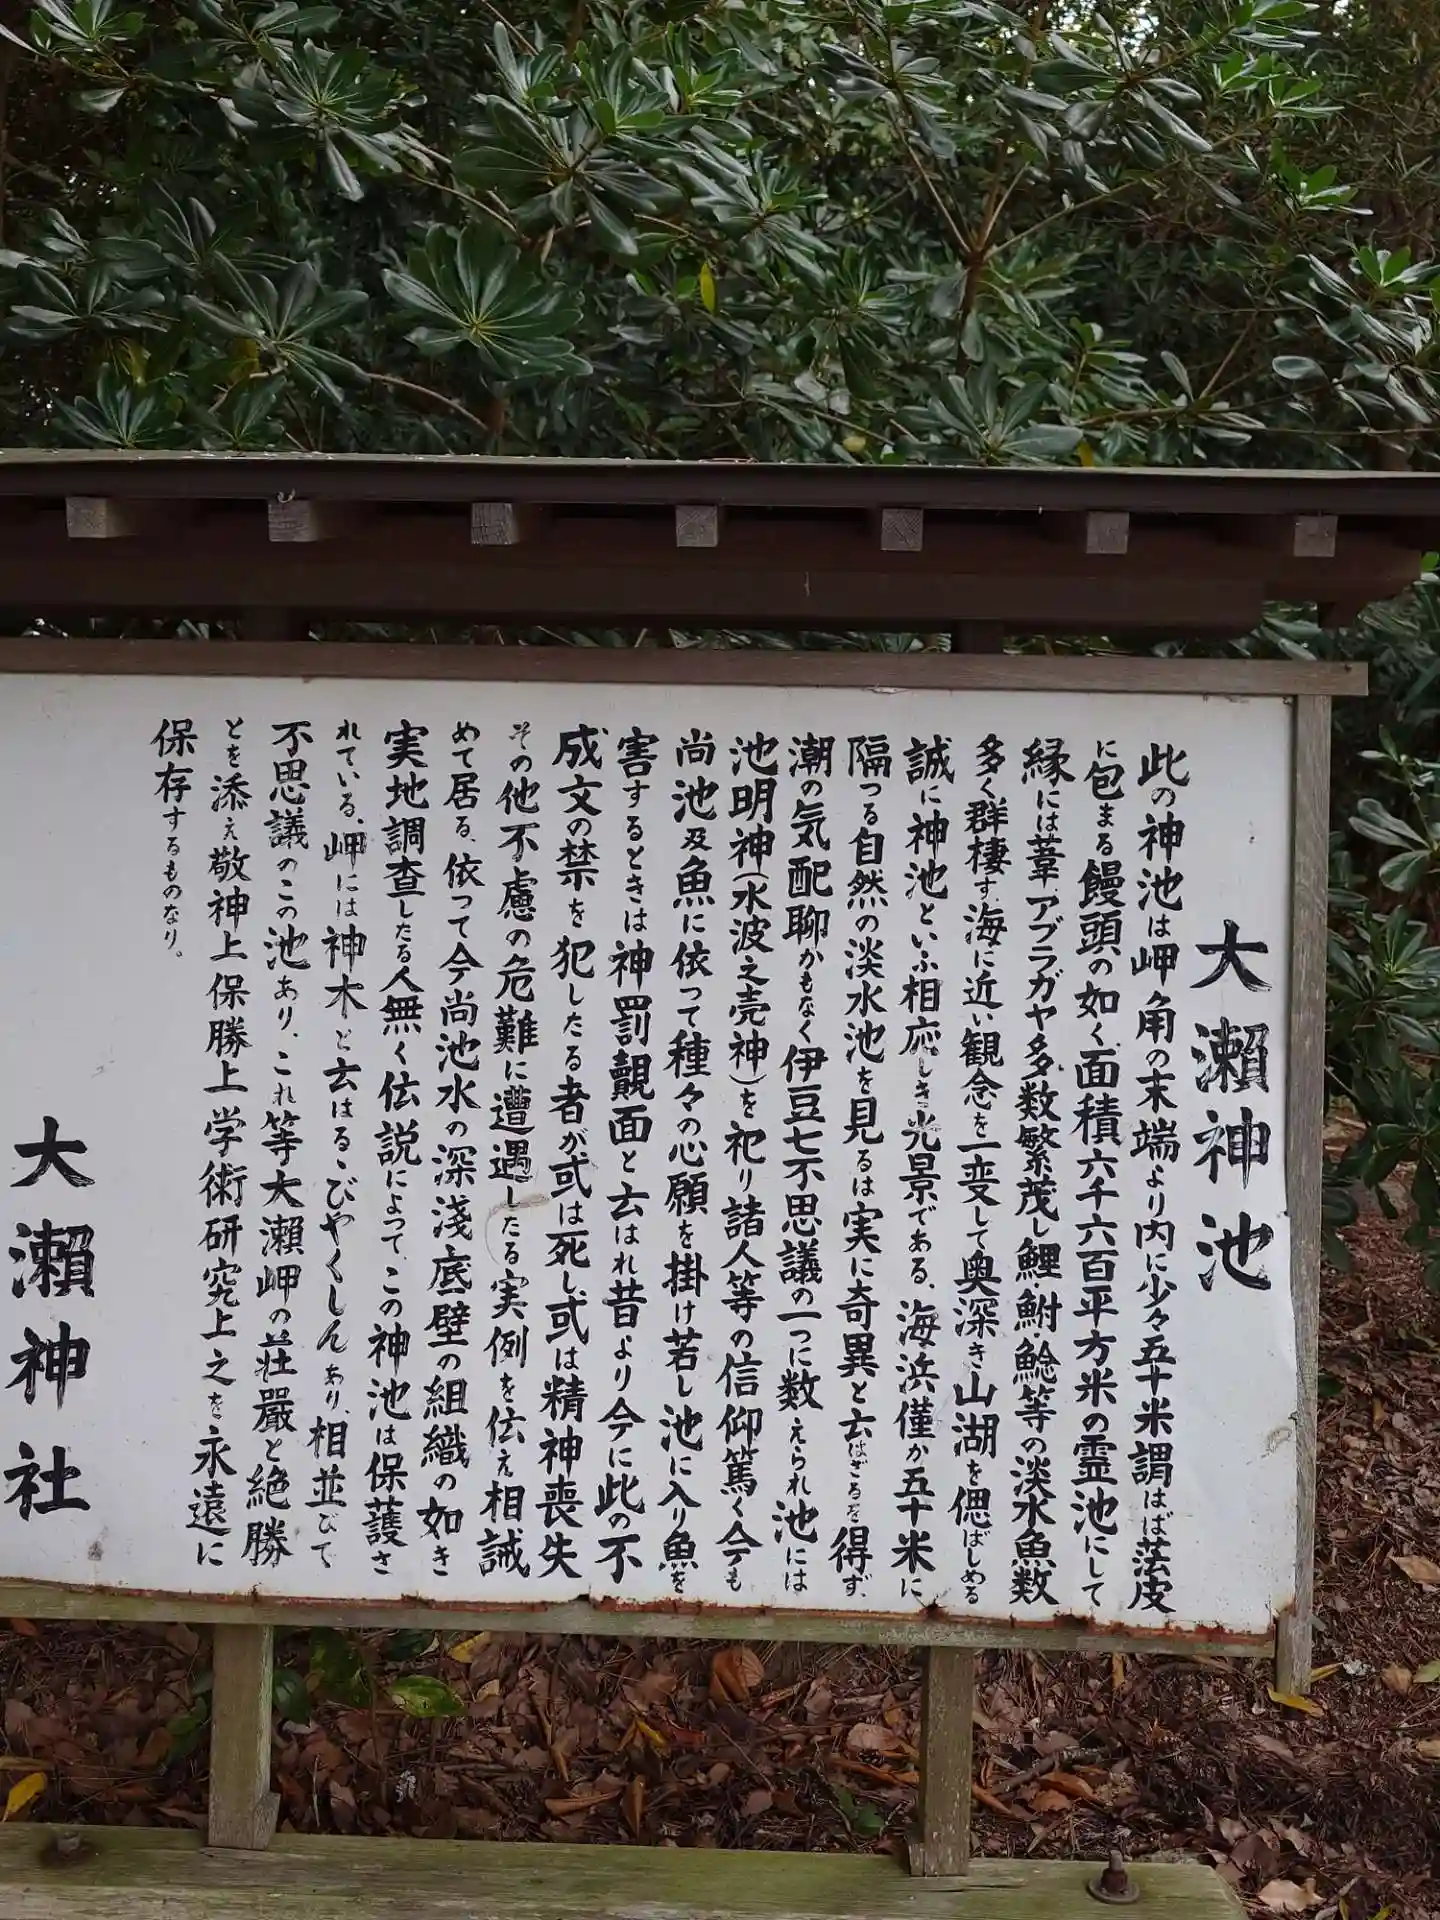 大瀬神池
此の神池は岬角の末端より内に少々五十米謂はば茫皮
に包まる饅頭の如く面積六千六百平方米の霊池にして
縁には葦、アブラガヤ多数繁茂し鯉鮒鯰等の淡水魚数
多く群棲す、海に近い観念を一変して奥深き山湖を偲ばしめる
誠に神池といふ相応しき光景である、海浜僅か五十米に
隔つる自然の淡水池を見るは実に奇異と云はざるを得ず、
潮の気配聊かもなく伊豆七不思議の一つに数えられ池には
池明神(水波之売神)を祀り諸人等の信仰篤く今も
尚池及魚に依つて種々の心願を掛け若し池に入り魚を
害するときは神罰覿面と云はれ昔より今に此の不
成文の禁を犯したる者が或は死し、或は精神喪失
その他不慮の危難に遭遇したる実例を伝え相誡
めて居る、依つて今尚池水の深淺底壁の組織の如き
実地調査したる人無く伝説によつて、この神池は保護さ
れている、岬には神木と云はるゝびやくしんあり、相並びて
不思議のこの池あり、これ等大瀬岬の荘嚴と絶勝
とを添え敬神上保勝上学術研究上之を永遠に
保存するものなり。
大瀬神社